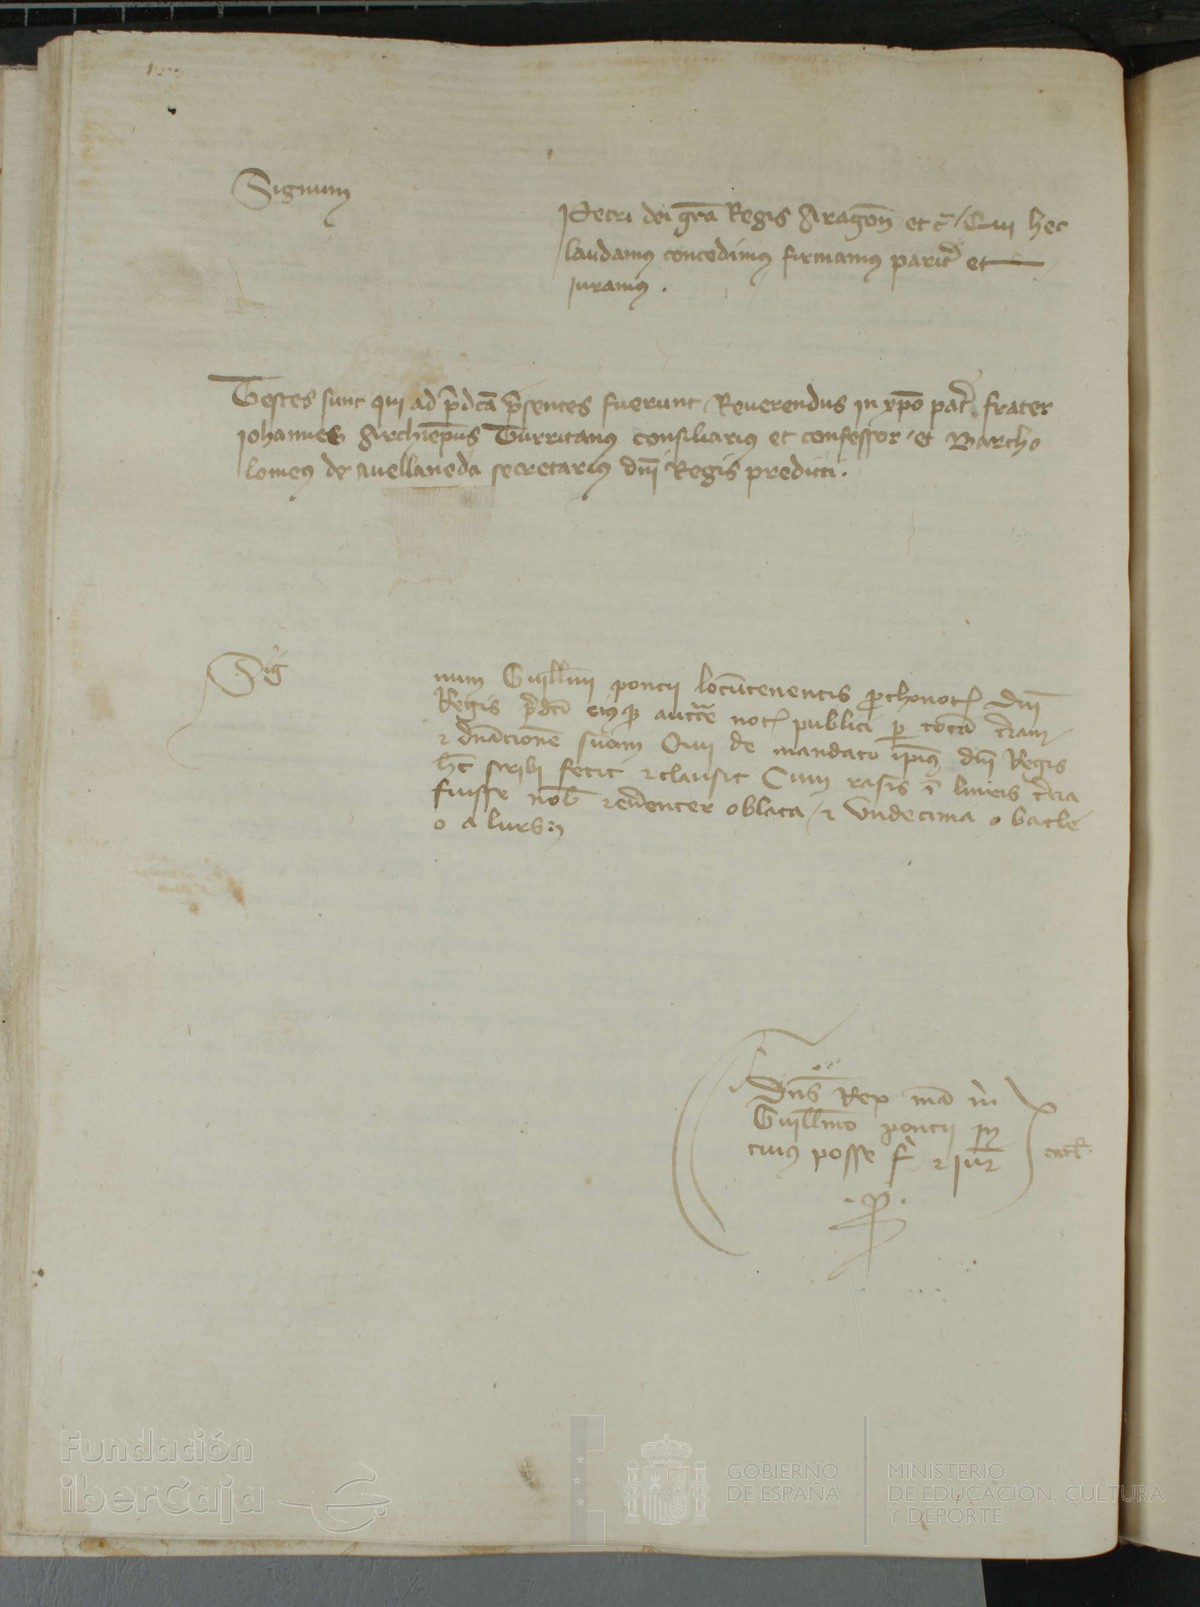 Signum
Petri dei gr̄a Regis Aragon̄ et c̄ / Qui hec
laudamus concedimus firmamus parit̄ et
iuramus .
Testes sunt qui ad p̄dc̄a p̄sentes fuerunt Reuerendus in xp̄o pat̄ frater
Johannes Archiep̄us Turritanus consiliarius et confessor / et Bartho
lomeus de auellaneda secretarius dn̄i Regis predicti .
Sig
num Guill̄mi poncii locūtenentis ꝓthonot̄ Dn̄i
Regis p̄dc̄i eiusqꝫ auct̄e not̄ publici ꝑ totā t̄ram
⁊ dn̄acionē suam Qui de mandato ip̄ius dn̄i Regis
hec scribi fecit ⁊ clausit Cum rasis ī lineis t̄cia
fuisse nob̄ ⁊ euidenter oblata / ⁊ Undecima o batle
o a lurs
Dn̄s Rex mā m̄
Guill̄mo poncii in
cuius posse f̄ ⁊ iur̄
.P.
Fundación
iberCaja
GOBIERNO
DE ESPAÑA
MINISTERIO
DE EDUCACIÓN, CULTURA
Y DEPORTE